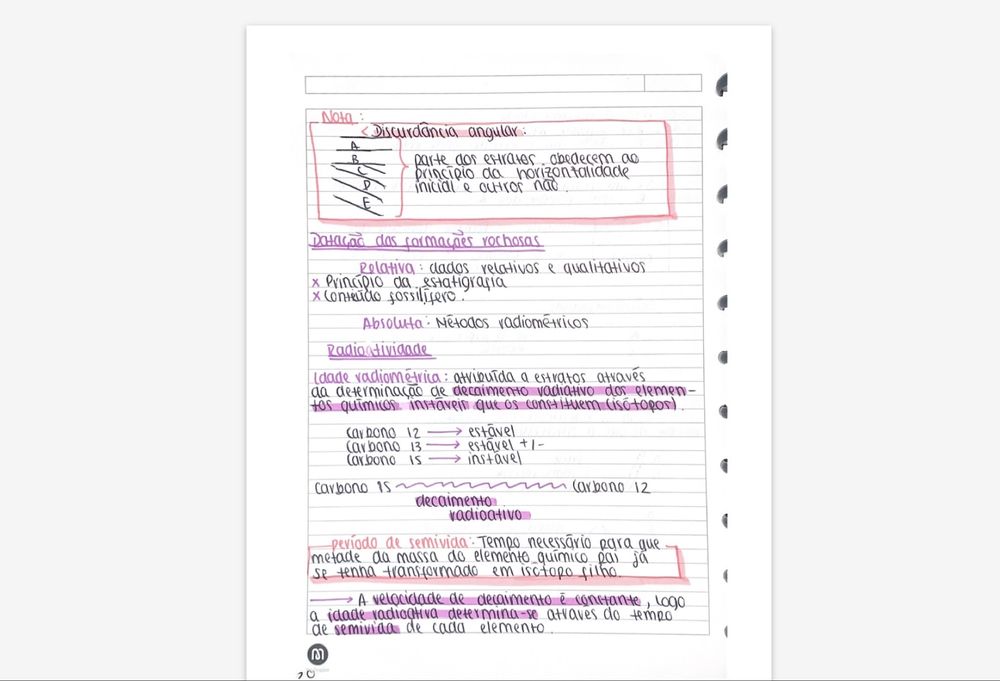 Nota:
< Discordância angular:
A
B
C
D
E
parte dos estratos obedecem ao
princípio da horizontalidade
inicial e outros não.
Datação das formações rochosas
Relativa: dados relativos e qualitativos
x Princípio da estatigrafia
x Conteúdo fossilífero.
Absoluta: Métodos radiométricos
Radioatividade
Idade radiométrica: atribuída a estratos através
da determinação de decaimento radiativo dos elemen-
tos químicos instáveis que os constituem (isótopos).
Carbono 12 → estável
Carbono 13 → estável +/-
Carbono 15 → instável
Carbono 15 Carbono 12
decaimento
radioativo
período de semivida: Tempo necessário para que
metade da massa do elemento químico pai já
se tenha transformado em isótopo filho.
→ A velocidade de decaimento é constante, logo
a idade radioativa determina-se através do tempo
de semivida de cada elemento.
m
20